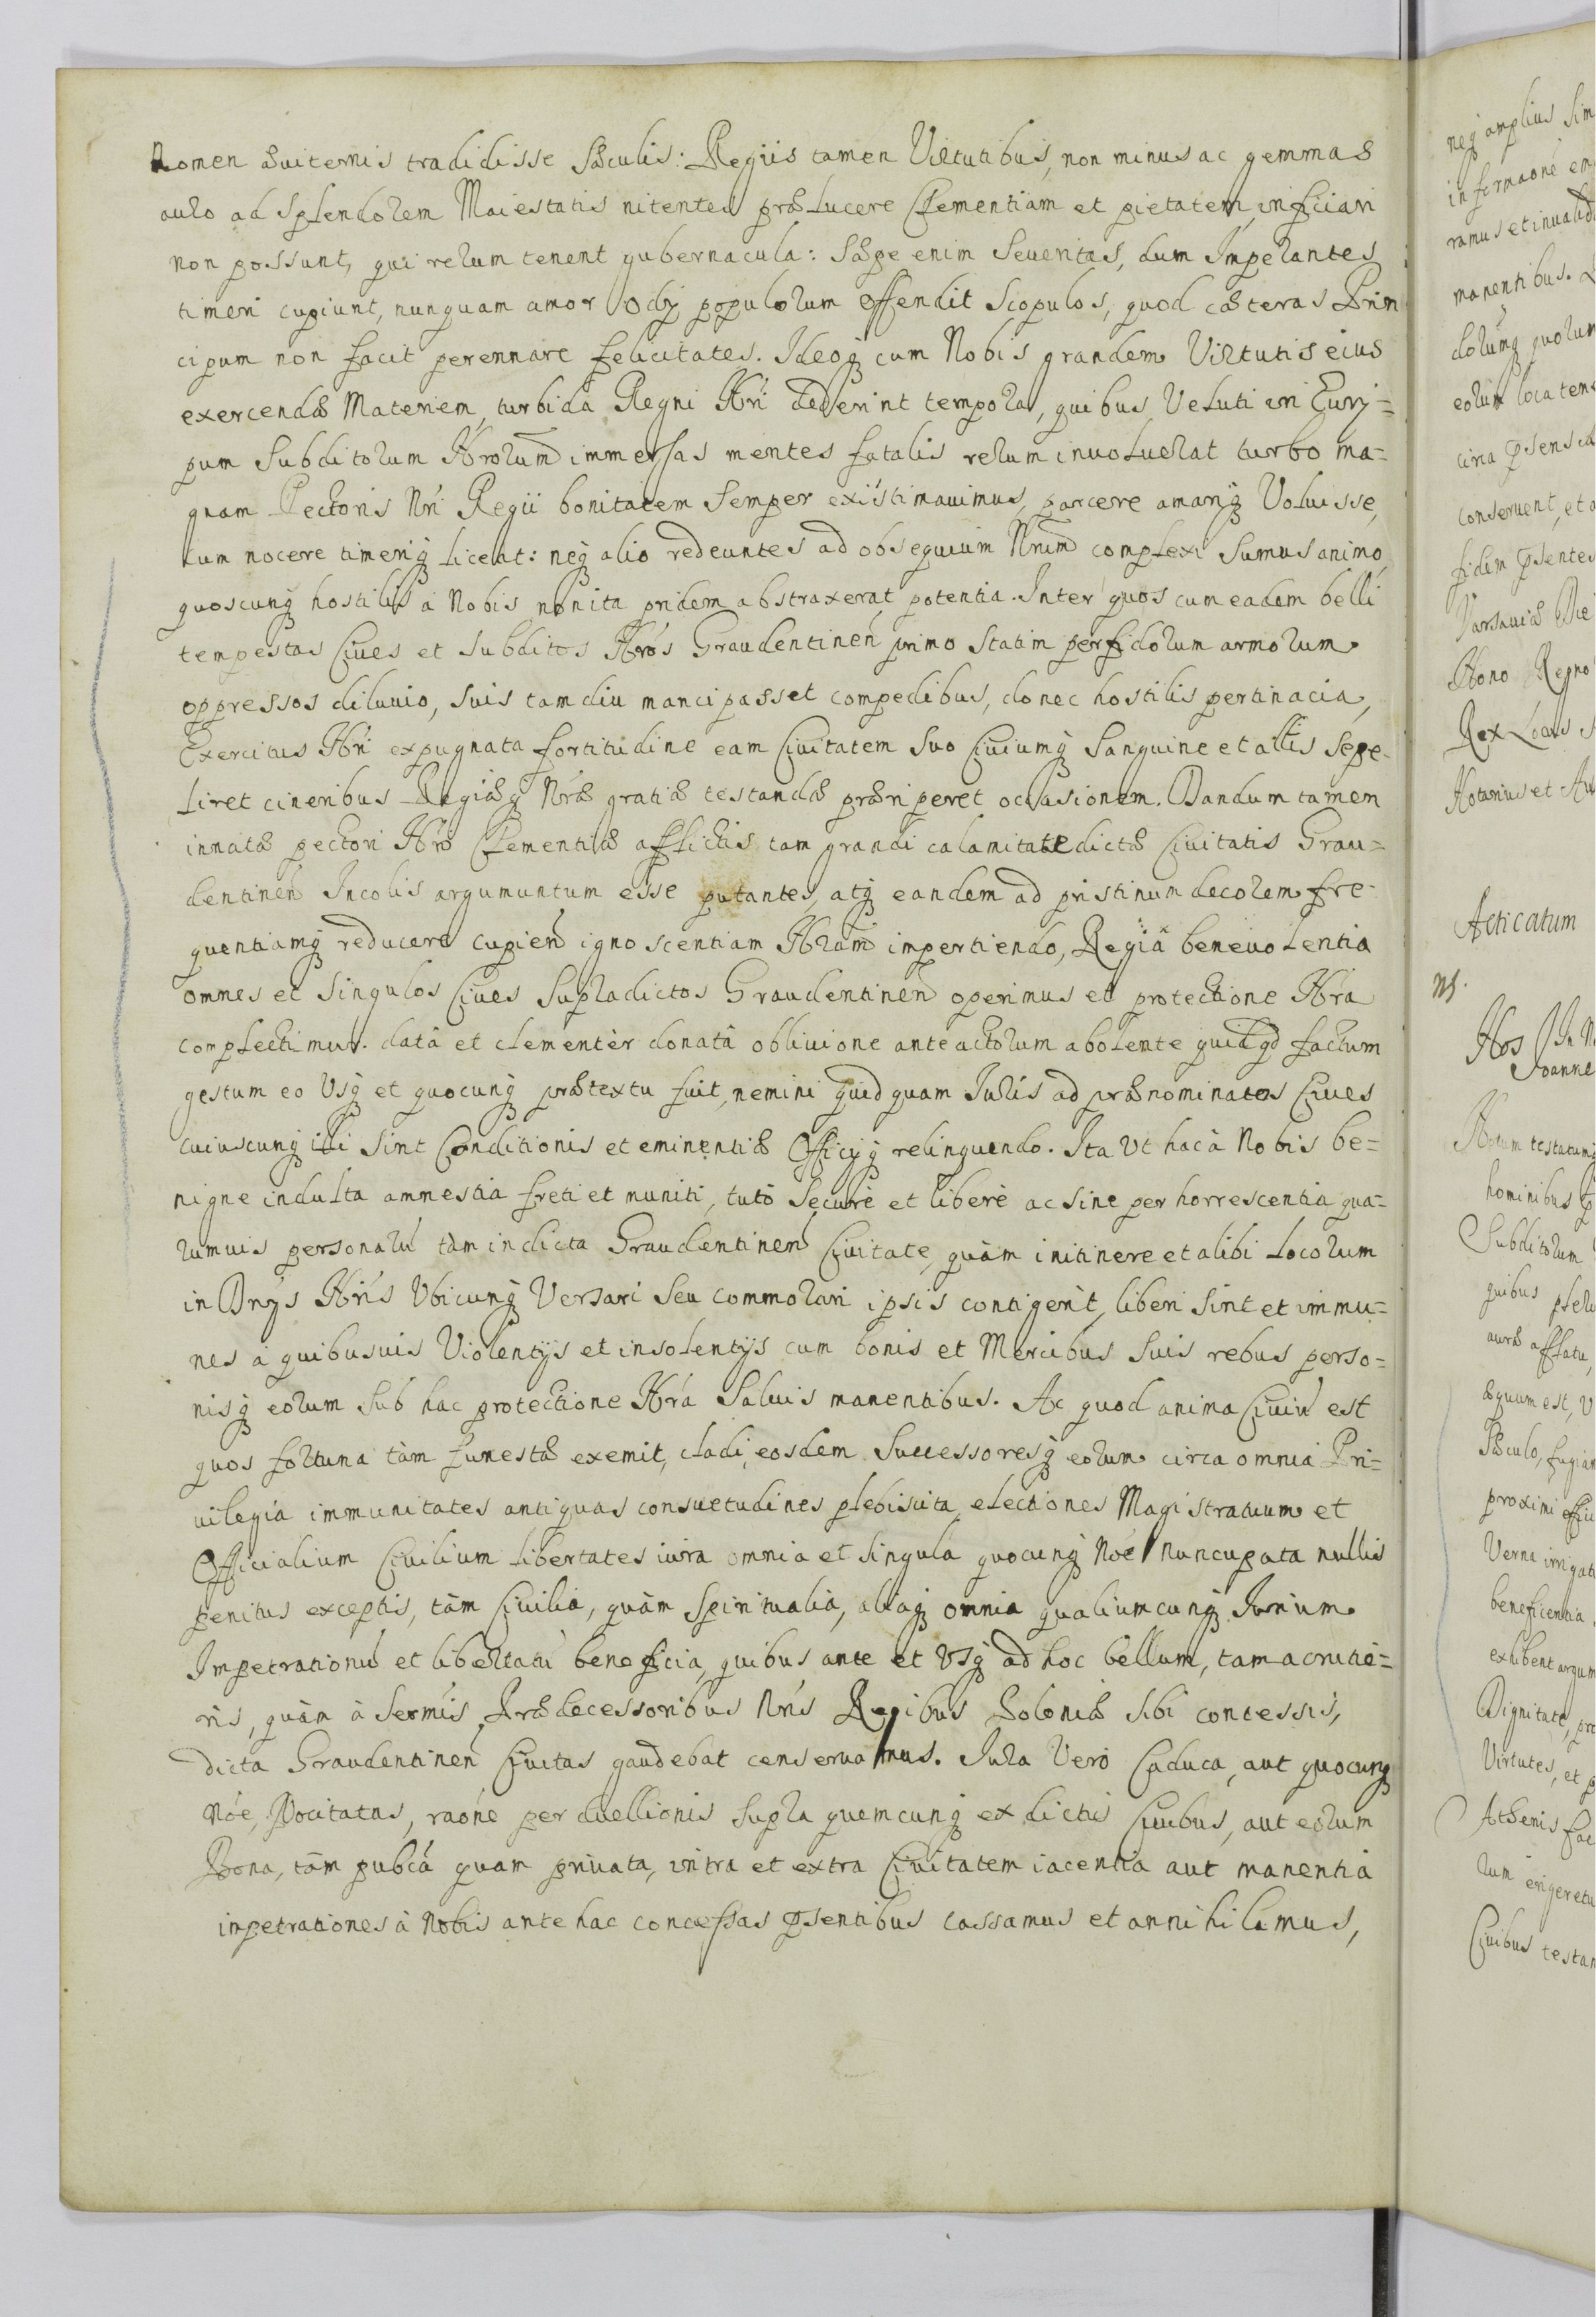 nomen æviternis tradidisse Sæculis: Regiis tamen Virtutibus, non minus ac gemmas
auro ad Splendorem Maiestatis nitentes prælucere Clementiam et pietatem inficiari
non possunt, qui rerum tenent gubernacula: Sæpe enim Severitas, dum Imperantes
timeri cupiunt, nunquam amor Odij populorum offendit Scopulos, quod cæteras Prin
cipum non facit perennare felicitates. Ideoq cum Nobis grandem Virtutis eius
exercendæ Materiem, turbida Regni Nri dederint tempora, quibus Veluti in Eury=
pum Subditorum Nrorum immersas mentes fatalis rerum inuoluerat turbo ma=
gnam Pectoris Nri Regii bonitatem Semper existimauimus, parcere amariq Voluisse,
cum nocere timeriq liceat: neq alio redeuntes ad obsequium Nrum complexi Sumus animo,
quoscunq hostilis à Nobis nonita pridem abstraxerat potentia. Inter quos cum eadem belli
tempestas Ciues et Subditos Nros Graudentinen primo Statim perfidorum armorum
oppressos diluuio, suis tam diu mancipasset compedibus, donec hostilis pertinacia,
Exercitus Nri expugnata fortitudine eam Ciuitatem Suo Ciuiumq Sanguine et altis Sepe-
liret cineribus Regiæq Nræ gratiæ testandæ præriperet occasionem. Dandum tamen
innatæ pectori Nro Clementiæ afflictis tam grandi calamitate dictæ Ciuitatis Grau=
dentinen Incolis argumuntum esse putantes, atq eandem ad pristinum decorem fre-
quentiamq reducere cupien ignoscentiam Nram impertiendo, Regiâ beneuolentia
omnes et Singulos Ciues Supradictos Graudentinen operimus et protectione Nra
complectimur. datâ et clementèr donatâ obliuione anteactorum abolente quidqd factum
gestum eo Vsq et quocunq prætextu fuit, nemini quidquam Iuris ad prænominatos Ciues
cuiuscunq illi Sint Conditionis et eminentiæ Officijq relinquendo. Ita Vt hac à Nobis be=
nigne indulta amnestia freti et muniti, tutò Securè et liberè ac sine perhorrescentia qua=
rumuis personarū tàm in dicta Graudentinen Ciuitate, quàm in itinere et alibi Locorum
in Dnys Nris Vbicunq Versari Seu commorari ipsis contigerit, liberi Sint et immu=
nes à quibusuis Violentijs et insolentijs cum bonis et Mercibus Suis rebus perso=
nisq eorum Sub hac protectione Nra Saluis manentibus. Ac quod anima Ciuiū est
quos fortuna tàm funestæ exemit, cladi, eosdem Successoresq eorum circa omnia Pri=
uilegia immunitates antiquas consuetudines plebiscita electiones Magistratuum et
Officialium Ciuilium libertates iura omnia et Singula quocunq Noe nuncupata nullis
penitus exceptis, tàm Ciuilia, quàm Spiritualia, aliaq omnia qualiumcunq Iurium
Impetrationū et libertatū beneficia, quibus ante et Vsq ad hoc bellum, tam à cruciie=
ris, quàm à Sermis Prædecessoribus Nris Regibus Poloniæ Sibi concessis,
dicta Graudentinen Ciuitas gaudebat conseruamus. Iura Verò Caduca, aut quocunq
Noe, Vocitatas, raone perduellionis Supra quemcunq ex dictis Ciuibus, aut eorum
Bona, tàm pubca quam priuata, intra et extra Ciuitatem iacentia aut manentia
impetrationes à Nobis antehac concessas psentibus cassamus et annihilamus,
neq amplius Sim
ramus et inualid
manentibus.
dorumq quorum
eorum loca tene
circa psens
conseruent, et a
fidem psentes
Varsauiæ Die
Nono Regno
Rex Locus S
Notarius et
Acticatum
NS.
Nos
Joanne
Notum testatumq
hominibus
Subditorum
quibus
auræ afflatu,
æquum est, V
Sæculo, fugian
proximi
Verna irrigat
beneficentia,
exhibent argum
Dignitate, pro
Virtutes, et p
Athenis fac
rum erigeretu
Ciuibus testan